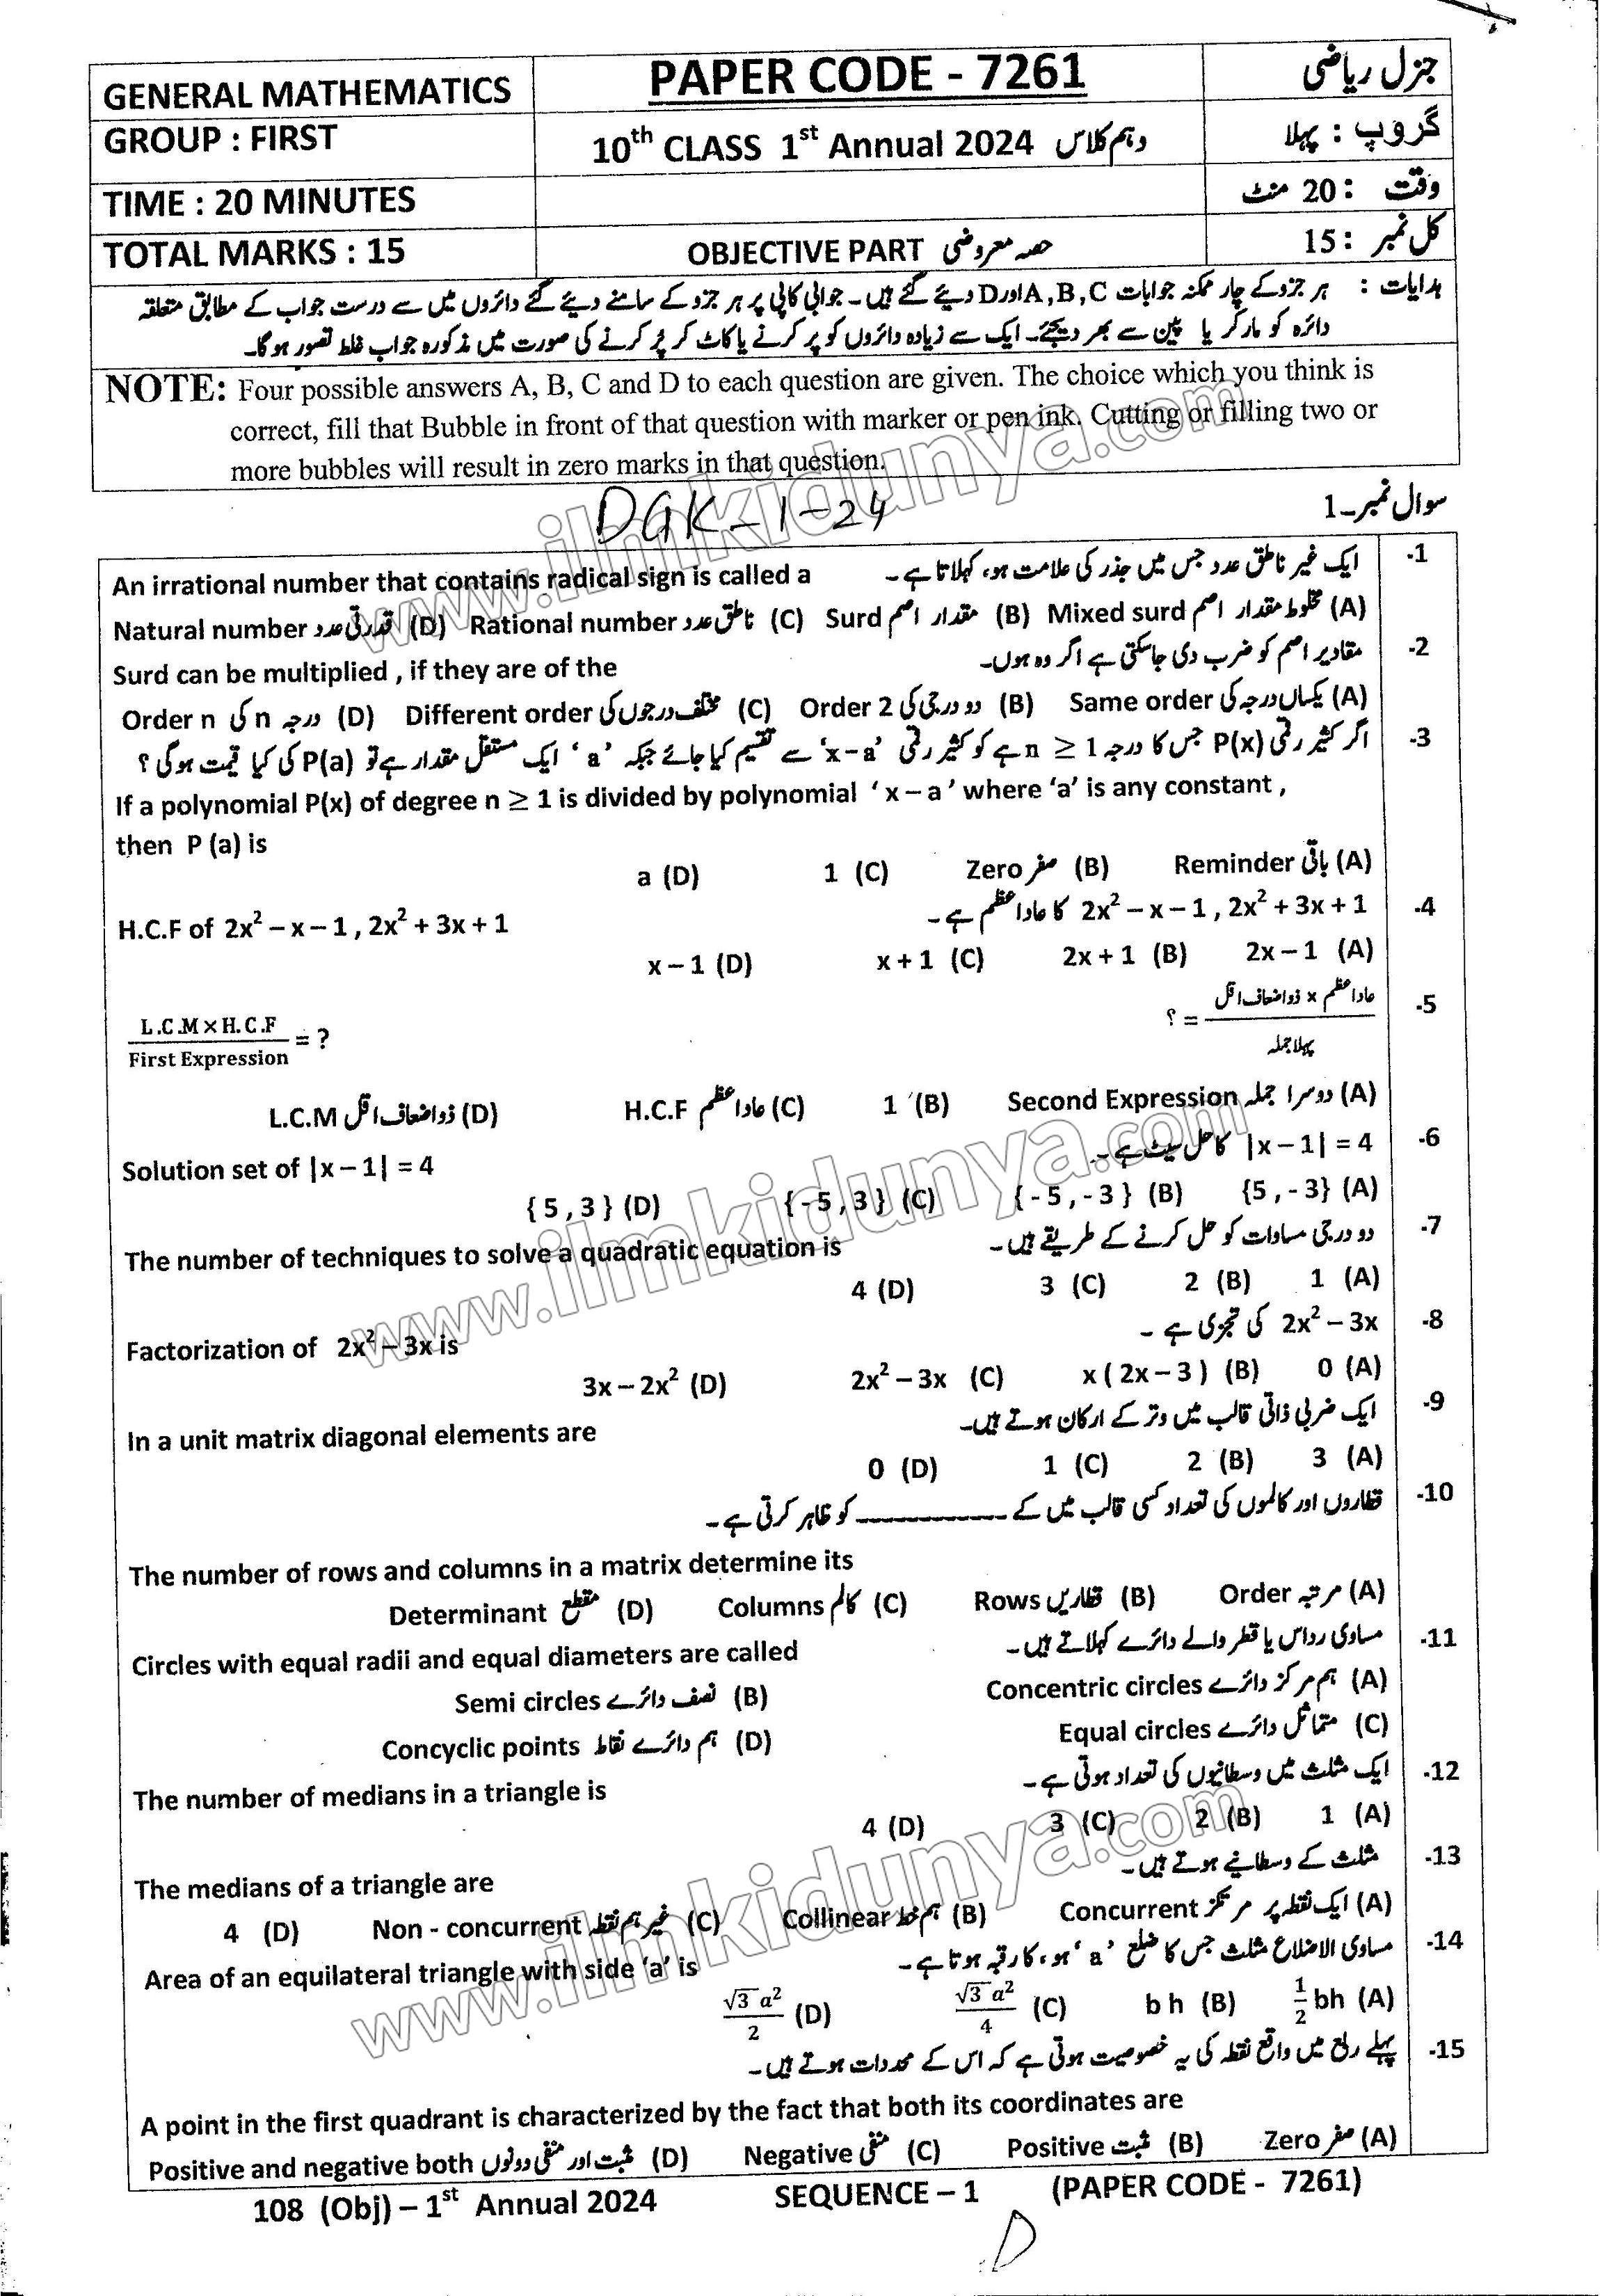 GENERAL MATHEMATICS PAPER CODE - 7261 جنرل ریاضی
GROUP : FIRST 10th CLASS 1st Annual 2024 دہم کلاس گروپ : پہلا
TIME : 20 MINUTES وقت : 20 منٹ
TOTAL MARKS : 15 OBJECTIVE PART حصہ معروضی کل نمبر : 15
ہدایات : ہر جزو کے چار ممکنہ جوابات A,B,C اور D دیئے گئے ہیں۔ جوابی کاپی پر ہر جزو کے سامنے دیئے گئے دائروں میں سے درست جواب کے مطابق متعلقہ
دائرہ کو مارکر یا پین سے بھر دیجئے۔ ایک سے زیادہ دائروں کو پر کرنے یا کاٹ کر پُر کرنے کی صورت میں مذکورہ جواب غلط تصور ہوگا۔
NOTE: Four possible answers A, B, C and D to each question are given. The choice which you think is
correct, fill that Bubble in front of that question with marker or pen ink. Cutting or filling two or
more bubbles will result in zero marks in that question.
DGK-1-24
سوال نمبر۔1
An irrational number that contains radical sign is called a ایک غیر ناطق عدد جس میں جذر کی علامت ہو، کہلاتا ہے۔ -1
Natural number قدرتی عدد (D) Rational number ناطق عدد (C) Surd مقدار اصم (B) Mixed surd مخلوط مقدار اصم (A)
Surd can be multiplied , if they are of the مقادیر اصم کو ضرب دی جاسکتی ہے اگر وہ ہوں۔ -2
Order n درجہ n کی (D) Different order مختلف درجوں کی (C) Order 2 دو درجی کی (B) Same order یکساں درجہ کی (A)
اگر کثیر رقمی P(x) جس کا درجہ n ≥ 1 ہے کو کثیر رقمی ‘x-a’ سے تقسیم کیا جائے جبکہ ‘a’ ایک مستقل مقدار ہے تو P(a) کی کیا قیمت ہوگی؟ -3
If a polynomial P(x) of degree n ≥ 1 is divided by polynomial ‘ x – a ’ where ‘a’ is any constant ,
then P (a) is
a (D) 1 (C) Zero صفر (B) Reminder باقی (A)
H.C.F of 2x² – x – 1 , 2x² + 3x + 1 2x² – x – 1 , 2x² + 3x + 1 کا عاداعظم ہے۔ -4
x – 1 (D) x + 1 (C) 2x + 1 (B) 2x – 1 (A)
L.C.M × H.C.F / First Expression = ? عاداعظم × ذواضعاف اقل / پہلا جملہ = ؟ -5
L.C.M ذواضعاف اقل (D) H.C.F عاداعظم (C) 1 (B) Second Expression دوسرا جملہ (A)
Solution set of |x – 1| = 4 |x – 1| = 4 کا حل سیٹ ہے۔ -6
{ 5 , 3 } (D) {- 5 , 3 } (C) { - 5 , - 3 } (B) {5 , - 3} (A)
The number of techniques to solve a quadratic equation is دو درجی مساوات کو حل کرنے کے طریقے ہیں۔ -7
4 (D) 3 (C) 2 (B) 1 (A)
Factorization of 2x² – 3x is 2x² – 3x کی تجزی ہے۔ -8
3x – 2x² (D) 2x² – 3x (C) x ( 2x – 3 ) (B) 0 (A)
In a unit matrix diagonal elements are ایک ضربی ذاتی قالب میں وتر کے ارکان ہوتے ہیں۔ -9
0 (D) 1 (C) 2 (B) 3 (A)
قطاروں اور کالموں کی تعداد کسی قالب میں کے ــــــــــــــــ کو ظاہر کرتی ہے۔ -10
The number of rows and columns in a matrix determine its
Determinant مقطع (D) Columns کالم (C) Rows قطاریں (B) Order مرتبہ (A)
Circles with equal radii and equal diameters are called مساوی رداس یا قطر والے دائرے کہلاتے ہیں۔ -11
Semi circles نصف دائرے (B) Concentric circles ہم مرکز دائرے (A)
Concyclic points ہم دائرے نقاط (D) Equal circles متماثل دائرے (C)
The number of medians in a triangle is ایک مثلث میں وسطانیوں کی تعداد ہوتی ہے۔ -12
4 (D) 3 (C) 2 (B) 1 (A)
The medians of a triangle are مثلث کے وسطانیے ہوتے ہیں۔ -13
4 (D) Non - concurrent غیر ہم نقطہ (C) Collinear ہم خط (B) Concurrent ایک نقطہ پر مرتکز (A)
Area of an equilateral triangle with side ‘a’ is مساوی الاضلاع مثلث جس کا ضلع ‘a’ ہو، کا رقبہ ہوتا ہے۔ -14
√3 a²/2 (D) √3 a²/4 (C) b h (B) 1/2 bh (A)
پہلے ربع میں واقع نقطہ کی یہ خصوصیت ہوتی ہے کہ اس کے محددات ہوتے ہیں۔ -15
A point in the first quadrant is characterized by the fact that both its coordinates are
Positive and negative both مثبت اور منفی دونوں (D) Negative منفی (C) Positive مثبت (B) Zero صفر (A)
108 (Obj) – 1st Annual 2024 SEQUENCE – 1 (PAPER CODE - 7261)
www.ilmkidunya.com
www.ilmkidunya.com
www.ilmkidunya.com